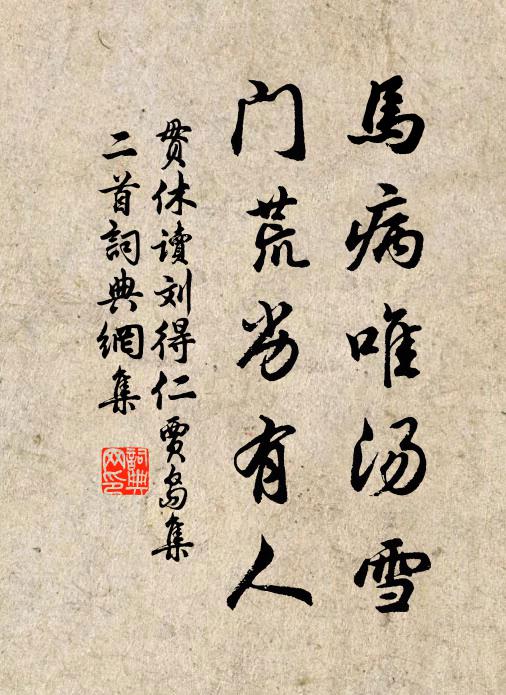 馬病唯汤雪
门荒劣有人
贯休读刘得仁贾岛集
二首詞典網集
詞典
网印